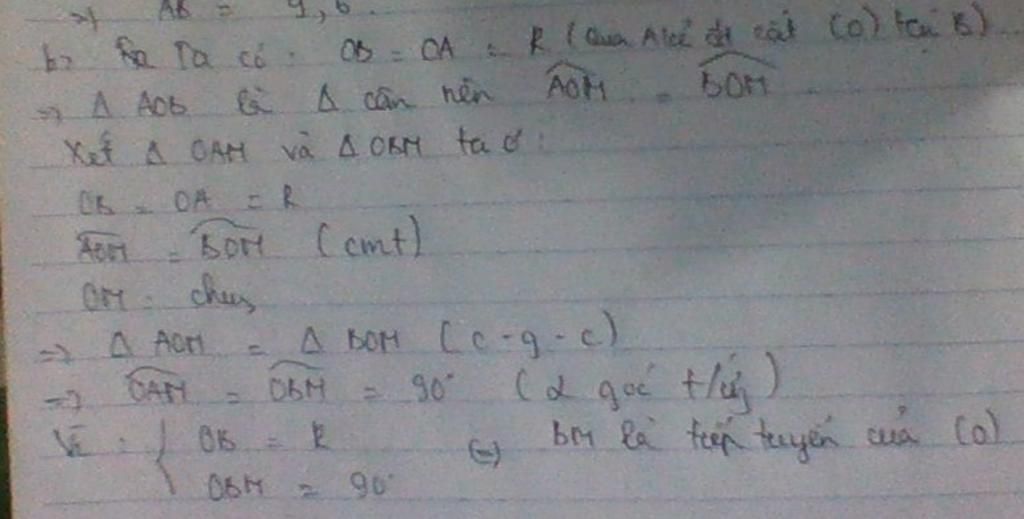 => AB = 9,6.
b> Ta có : OB = OA = R ( Qua A kẻ đt cắt (O) tại B)
=> Δ AOB là Δ cân nên AOM = BOM
Xét Δ OAM và Δ OBM ta có :
OB = OA = R
AOM = BOM (cmt)
OM : chung
=> Δ AOM = Δ BOM (c-g-c)
=> OAM = OBM = 90° (2 góc t/ứng)
Vì : { OB = R (=) BM là tiếp tuyến của (O)
OBM = 90°